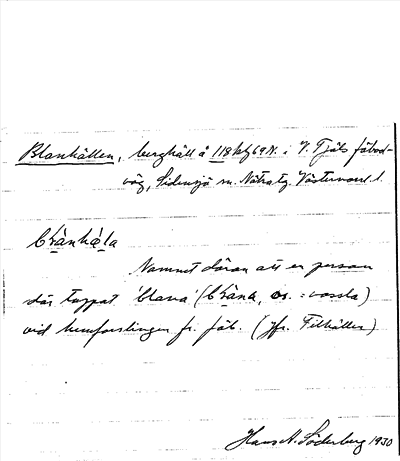 Blanhällen, berghäll å 118 kbl 69N. i V. Fjäls fäbod-
väg, Sidensjö sn. Nätra tg. Västernorrl. l.
blànhä̀la
Namnet däran att en person
där tappat 'blana' (blàna, os. : vassla)
vid hemforslingen fr. fäb. (jfr. Filhällen)
Hans A. Söderberg 1930